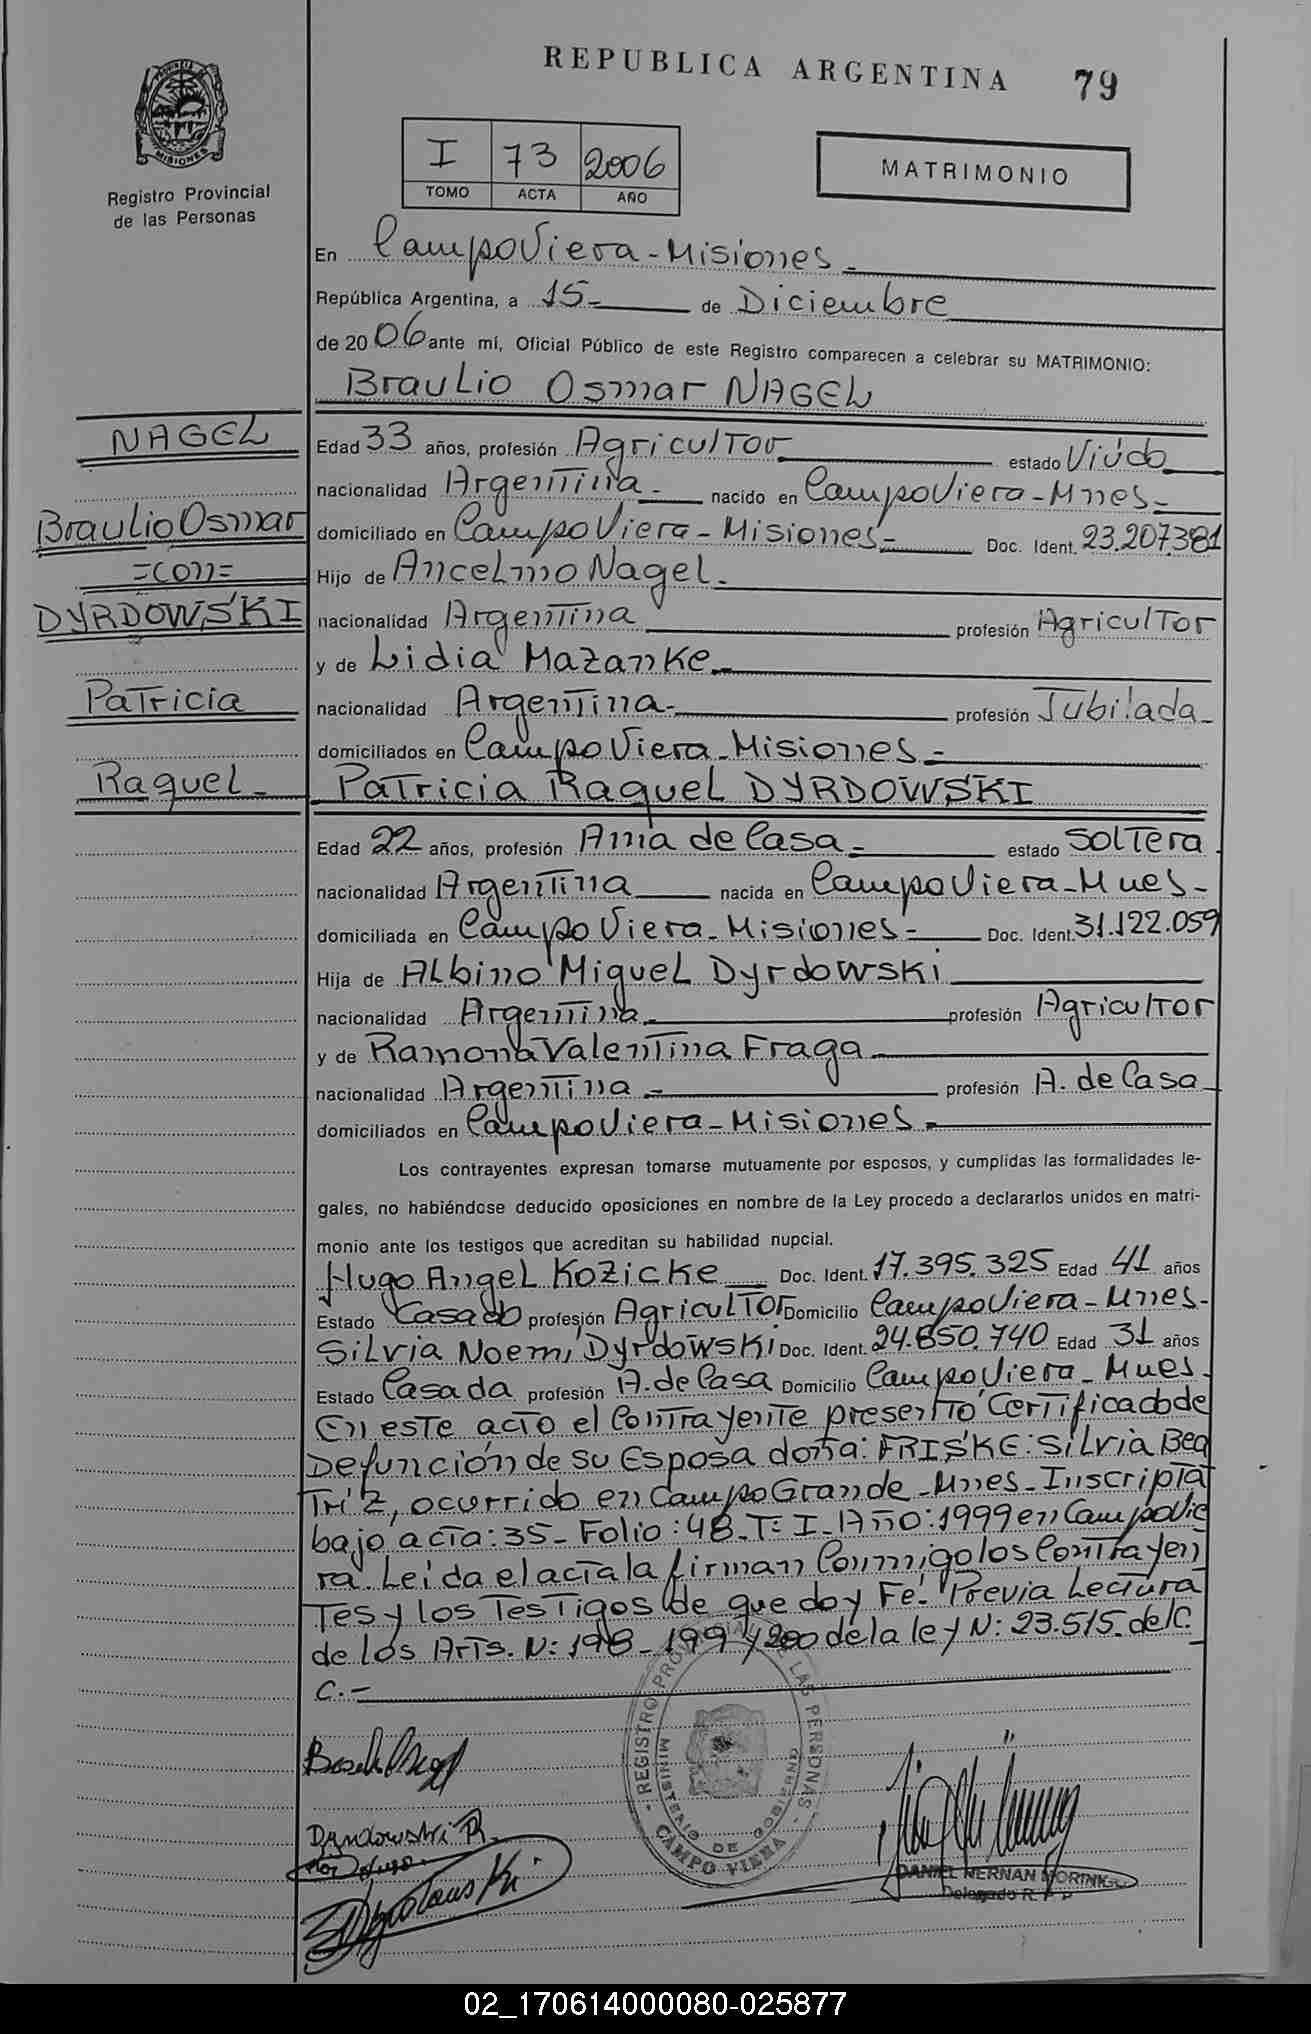 REPUBLICA ARGENTINA 79
PROVINCIA DE MISIONES
Registro Provincial
de las Personas
I 73 2006
TOMO ACTA AÑO
MATRIMONIO
En Campo Viera - Misiones -
República Argentina, a 15- de Diciembre
de 2006 ante mí, Oficial Público de este Registro comparecen a celebrar su MATRIMONIO:
Braulio Osmar NAGEL
NAGEL
Braulio Osmar
=con=
DYRDOWSKI
Patricia
Raquel-
Edad 33 años, profesión Agricultor estado Viúdo
nacionalidad Argentina- nacido en Campo Viera-Mnes-
domiciliado en Campo Viera-Misiones- Doc. Ident. 23.207.381
Hijo de Ancelmo Nagel.
nacionalidad Argentina profesión Agricultor
y de Lidia Mazanke-
nacionalidad Argentina- profesión Jubilada-
domiciliados en Campo Viera-Misiones-
Patricia Raquel DYRDOWSKI
Edad 22 años, profesión Ama de Casa- estado Soltera
nacionalidad Argentina nacida en Campo Viera-Mnes-
domiciliada en Campo Viera-Misiones- Doc. Ident. 31.122.059
Hija de Albino Miguel Dyrdowski
nacionalidad Argentina- profesión Agricultor
y de Ramona Valentina Fraga
nacionalidad Argentina- profesión A. de Casa
domiciliados en Campo Viera-Misiones-
Los contrayentes expresan tomarse mutuamente por esposos, y cumplidas las formalidades le-
gales, no habiéndose deducido oposiciones en nombre de la Ley procedo a declararlos unidos en matri-
monio ante los testigos que acreditan su habilidad nupcial.
Hugo Angel Kozicke Doc. Ident. 17.395.325 Edad 41 años
Estado Casado profesión Agricultor Domicilio Campo Viera-Mnes-
Silvia Noemi Dyrdowski Doc. Ident. 24.650.740 Edad 31 años
Estado Casada profesión A. de Casa Domicilio Campo Viera-Mnes-
En este acto el Contrayente presentó Certificado de
Defunción de su Esposa doña: FRISKE: Silvia Bea
Tríz, ocurrido en Campo Grande-Mnes-Inscripta
bajo acta: 35- Folio: 48-T: I-Año: 1999 en Campo Vie
ra. Leída el acta la firman Conmigo los Contrayen
Tes y los Testigos de que doy Fé. Previa Lectura
de los Arts. N: 198-199 y 200 de la ley N: 23.515. del C.
C.-
REGISTRO PROVINCIAL DE LAS PERSONAS
MINISTERIO DE GOBIERNO
CAMPO VIERA
Dyrdowski P.
DANIEL HERNAN MORINK
Delegado R. P. P.
02_170614000080-025877